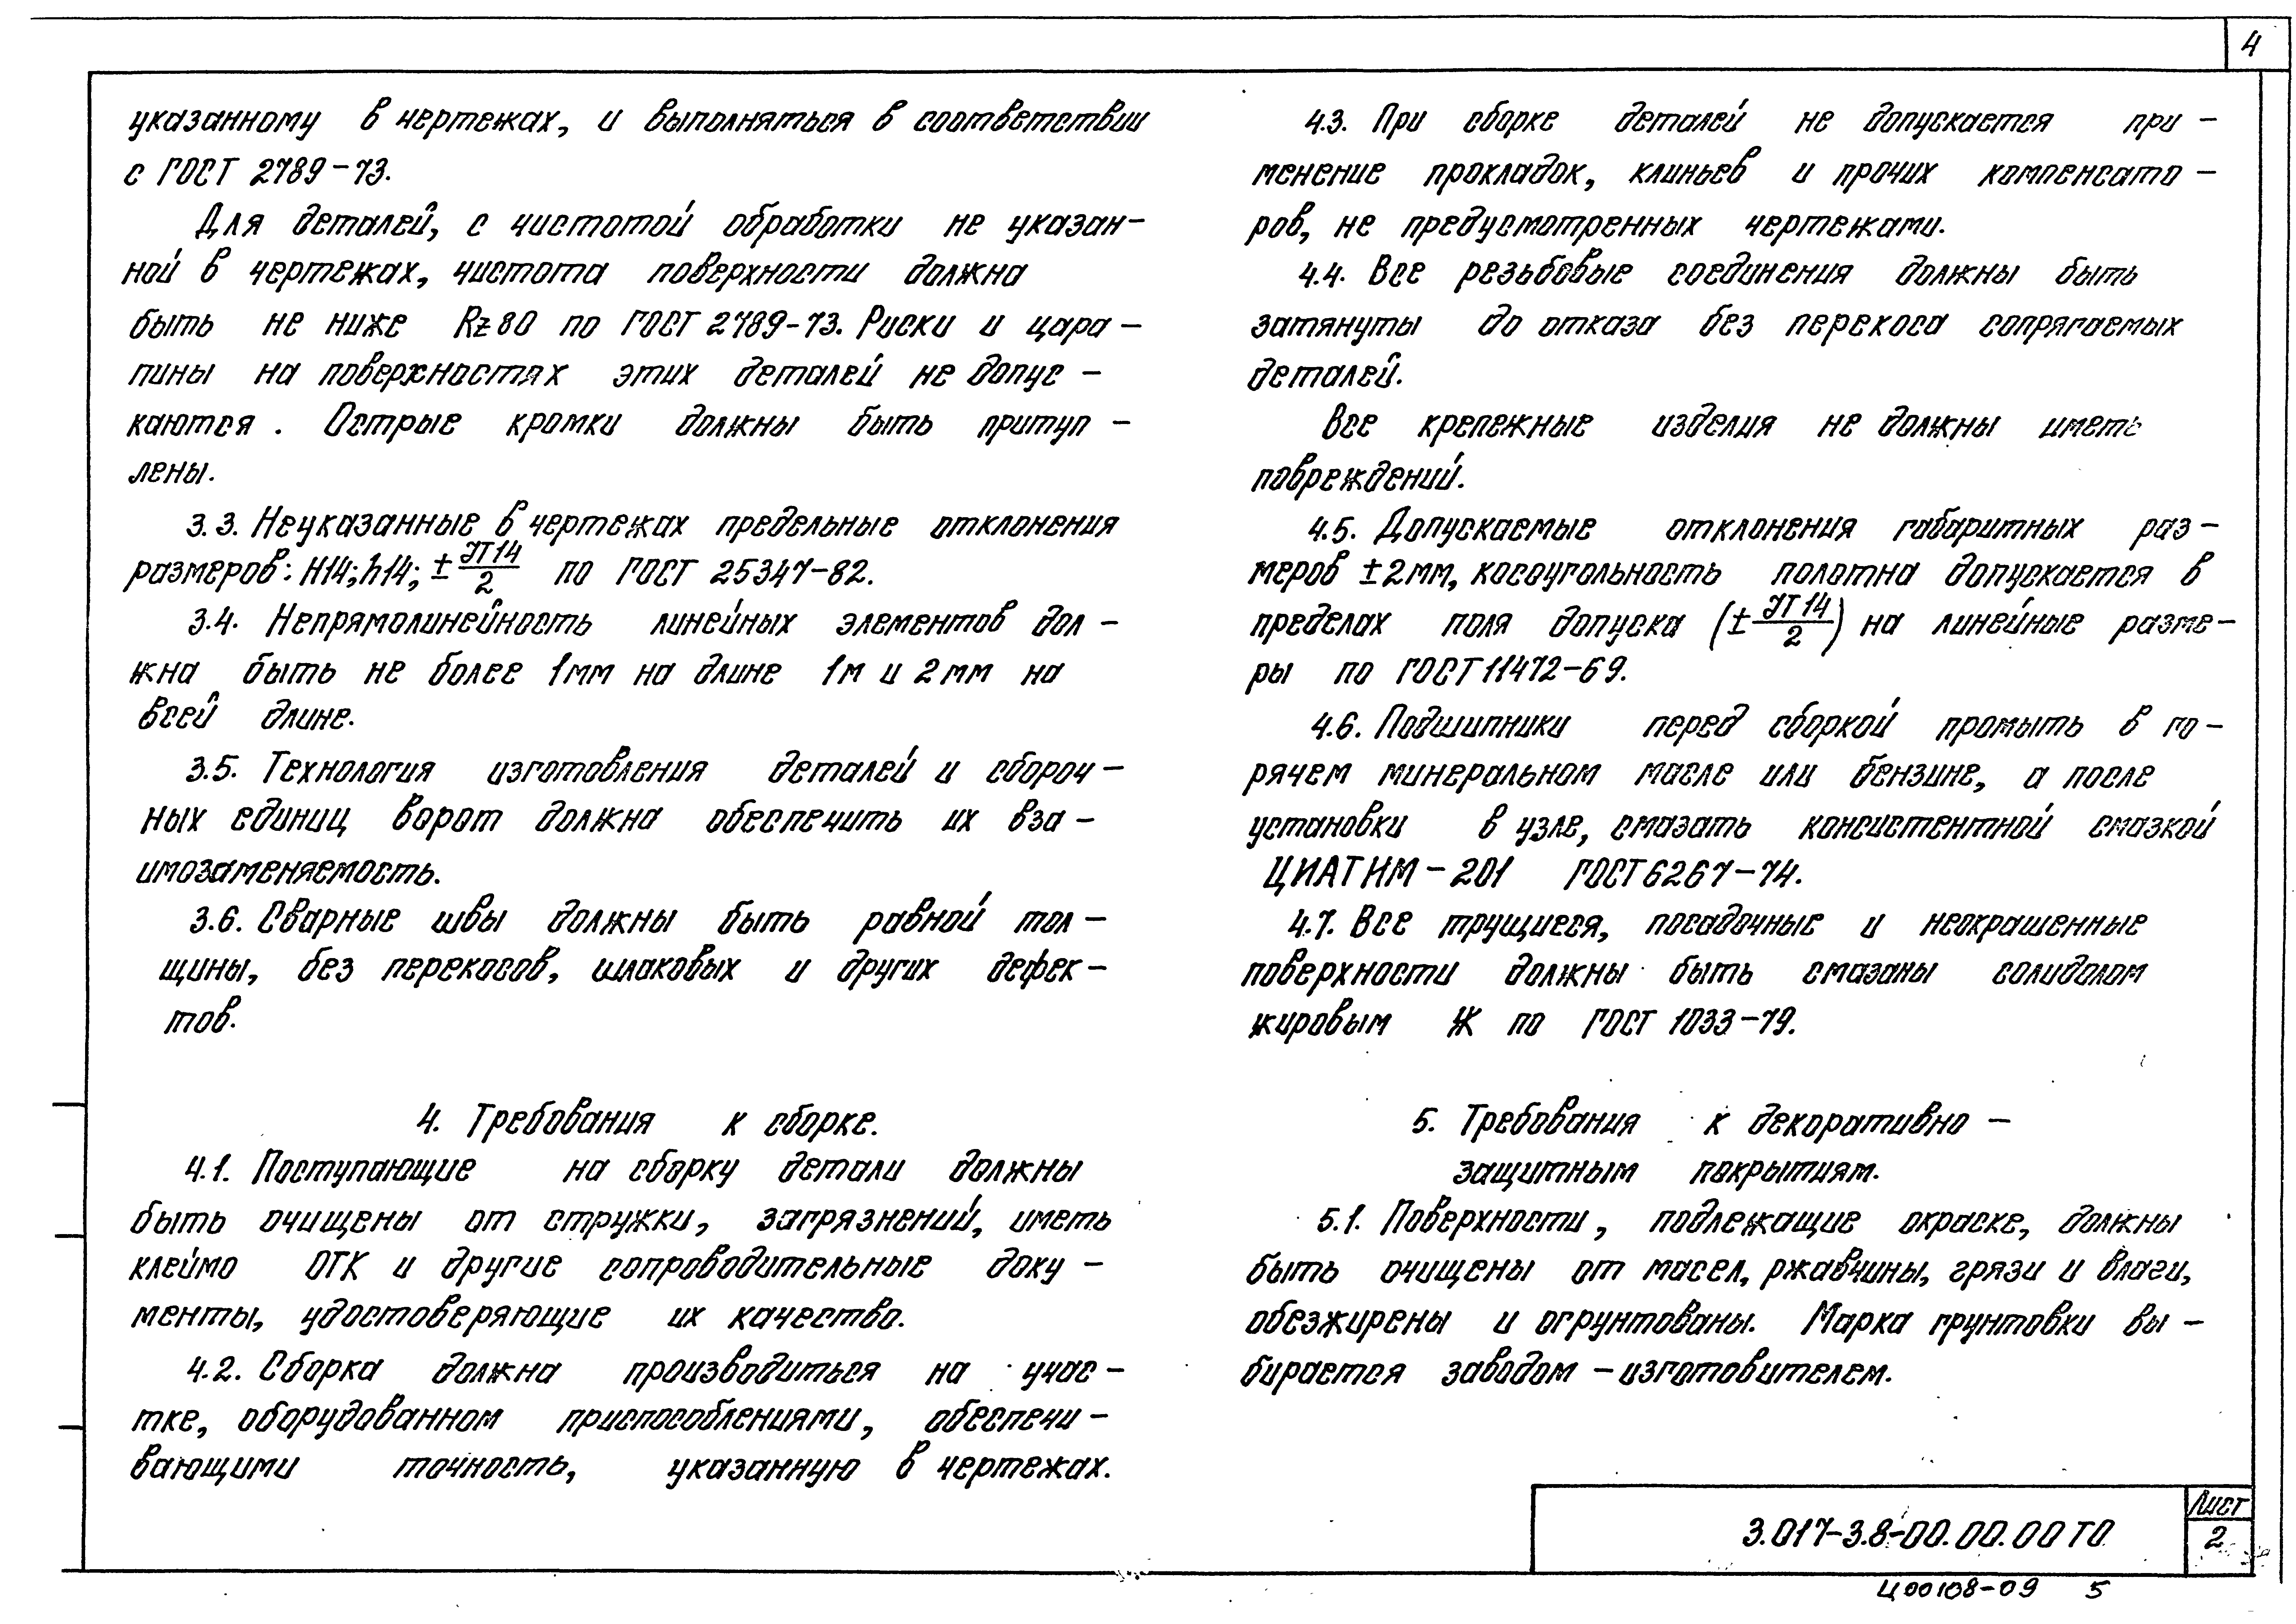 4
указанному в чертежах, и выполняться в соответствии
с ГОСТ 2789-73.
Для деталей, с чистотой обработки не указан-
ной в чертежах, чистота поверхности должна
быть не ниже Rz 80 по ГОСТ 2789-73. Риски и цара-
пины на поверхностях этих деталей не допус-
каются. Острые кромки должны быть притуп-
лены.
3.3. Неуказанные в чертежах предельные отклонения
размеров: H14; h14; ± JT14/2 по ГОСТ 25347-82.
3.4. Непрямолинейность линейных элементов дол-
жна быть не более 1мм на длине 1м и 2мм на
всей длине.
3.5. Технология изготовления деталей и сбороч-
ных единиц ворот должна обеспечить их вза-
имозаменяемость.
3.6. Сварные швы должны быть равной тол-
щины, без перекосов, шлаковых и других дефек-
тов.
4. Требования к сборке.
4.1. Поступающие на сборку детали должны
быть очищены от стружки, загрязнений, иметь
клеймо ОТК и другие сопроводительные доку-
менты, удостоверяющие их качество.
4.2. Сборка должна производиться на учас-
тке, оборудованном приспособлениями, обеспечи-
вающими точность, указанную в чертежах.
4.3. При сборке деталей не допускается при-
менение прокладок, клиньев и прочих компенсато-
ров, не предусмотренных чертежами.
4.4. Все резьбовые соединения должны быть
затянуты до отказа без перекоса сопрягаемых
деталей.
Все крепежные изделия не должны иметь
повреждений.
4.5. Допускаемые отклонения габаритных раз-
меров ±2мм, косоугольность полотна допускается в
пределах поля допуска (± JT14/2) на линейные разме-
ры по ГОСТ 11472-69.
4.6. Подшипники перед сборкой промыть в го-
рячем минеральном масле или бензине, а после
установки в узле, смазать консистентной смазкой
ЦИАТИМ-201 ГОСТ 6267-74.
4.7. Все трущиеся, посадочные и неокрашенные
поверхности должны быть смазаны солидолом
жировым Ж по ГОСТ 1033-79.
5. Требования к декоративно-
защитным покрытиям.
5.1. Поверхности, подлежащие окраске, должны
быть очищены от масел, ржавчины, грязи и влаги,
обезжирены и огрунтованы. Марка грунтовки вы-
бирается заводом-изготовителем.
3.017-3.8-00.00.00 ТО
Лист
2
Ц00108-09 5